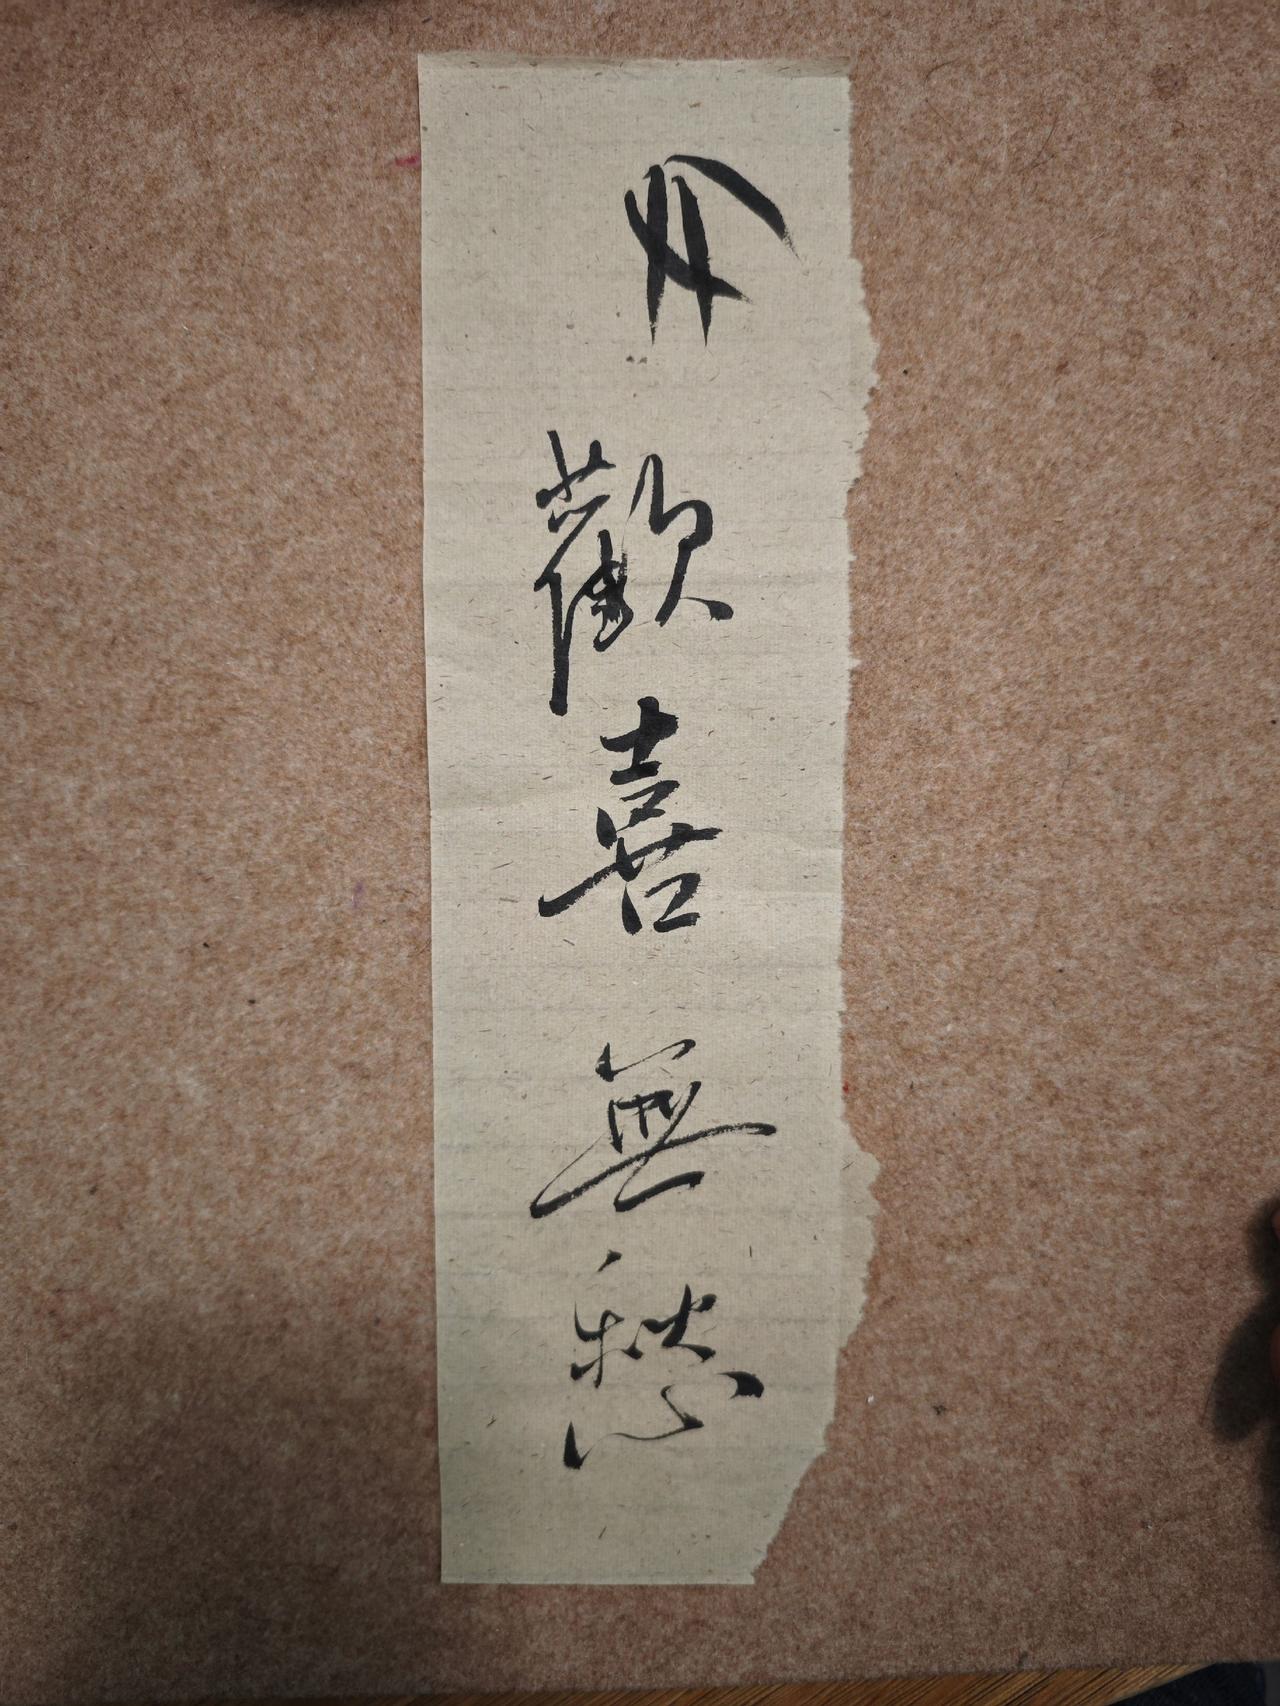 歡喜無愁